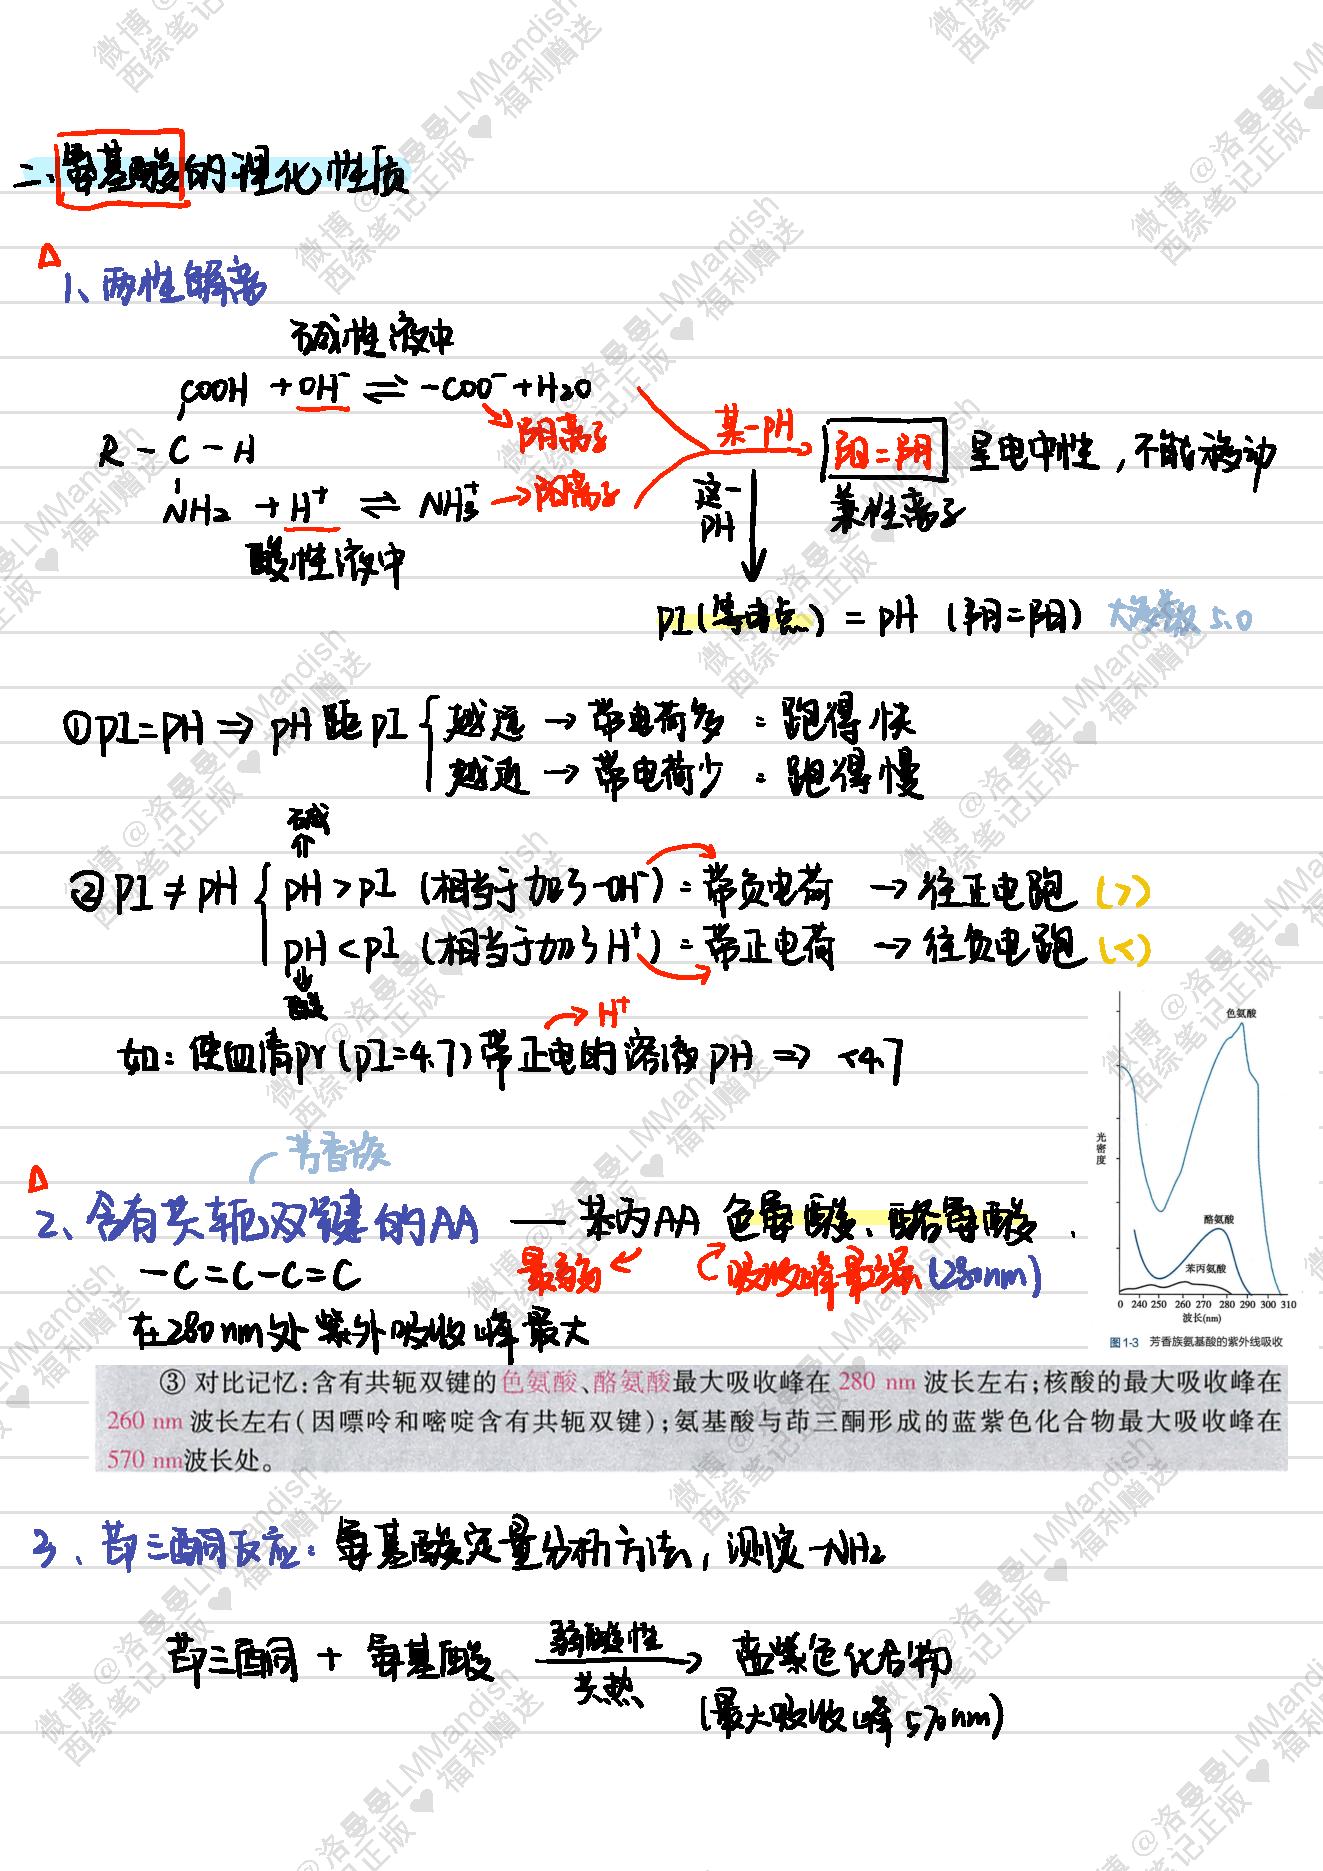 二、氨基酸的理化性质
1、两性解离
碱性液中
COOH + OH⁻ ⇌ -COO⁻ + H₂O
阴离子
R - C - H
某一pH
阳=阴
呈电中性，不能移动
NH₂ + H⁺ ⇌ NH₃⁺
阳离子
这一pH
兼性离子
酸性液中
pI(等电点) = pH (阴=阳) 大多数5.0
①pI=pH ⇒ pH距pI { 越远 → 带电荷多：跑得快
越近 → 带电荷少：跑得慢
碱
②pI ≠ pH { pH > pI (相当于加了-OH⁻) = 带负电荷 → 往正电跑 (>)
pH < pI (相当于加了H⁺) = 带正电荷 → 往负电跑 (<)
酸
H⁺
如：使血清pr(pI=4.7)带正电的溶液pH ⇒ <4.7
芳香族
2、含有共轭双键的AA — 苯丙AA 色氨酸、酪氨酸
-C=C-C=C 最弱 吸收峰最强(280nm)
在280nm处紫外吸收峰最大
光密度
色氨酸
酪氨酸
苯丙氨酸
0 240 250 260 270 280 290 300 310
波长(nm)
图1-3 芳香族氨基酸的紫外线吸收
③ 对比记忆：含有共轭双键的色氨酸、酪氨酸最大吸收峰在 280 nm 波长左右；核酸的最大吸收峰在
260 nm 波长左右（因嘌呤和嘧啶含有共轭双键）；氨基酸与茚三酮形成的蓝紫色化合物最大吸收峰在
570 nm波长处。
3、茚三酮反应：氨基酸定量分析方法，测定-NH₂
茚三酮 + 氨基酸 弱酸性 共热 → 蓝紫色化合物
(最大吸收峰570nm)
微博@洛曼曼LMMandish
西综笔记正版♥福利赠送